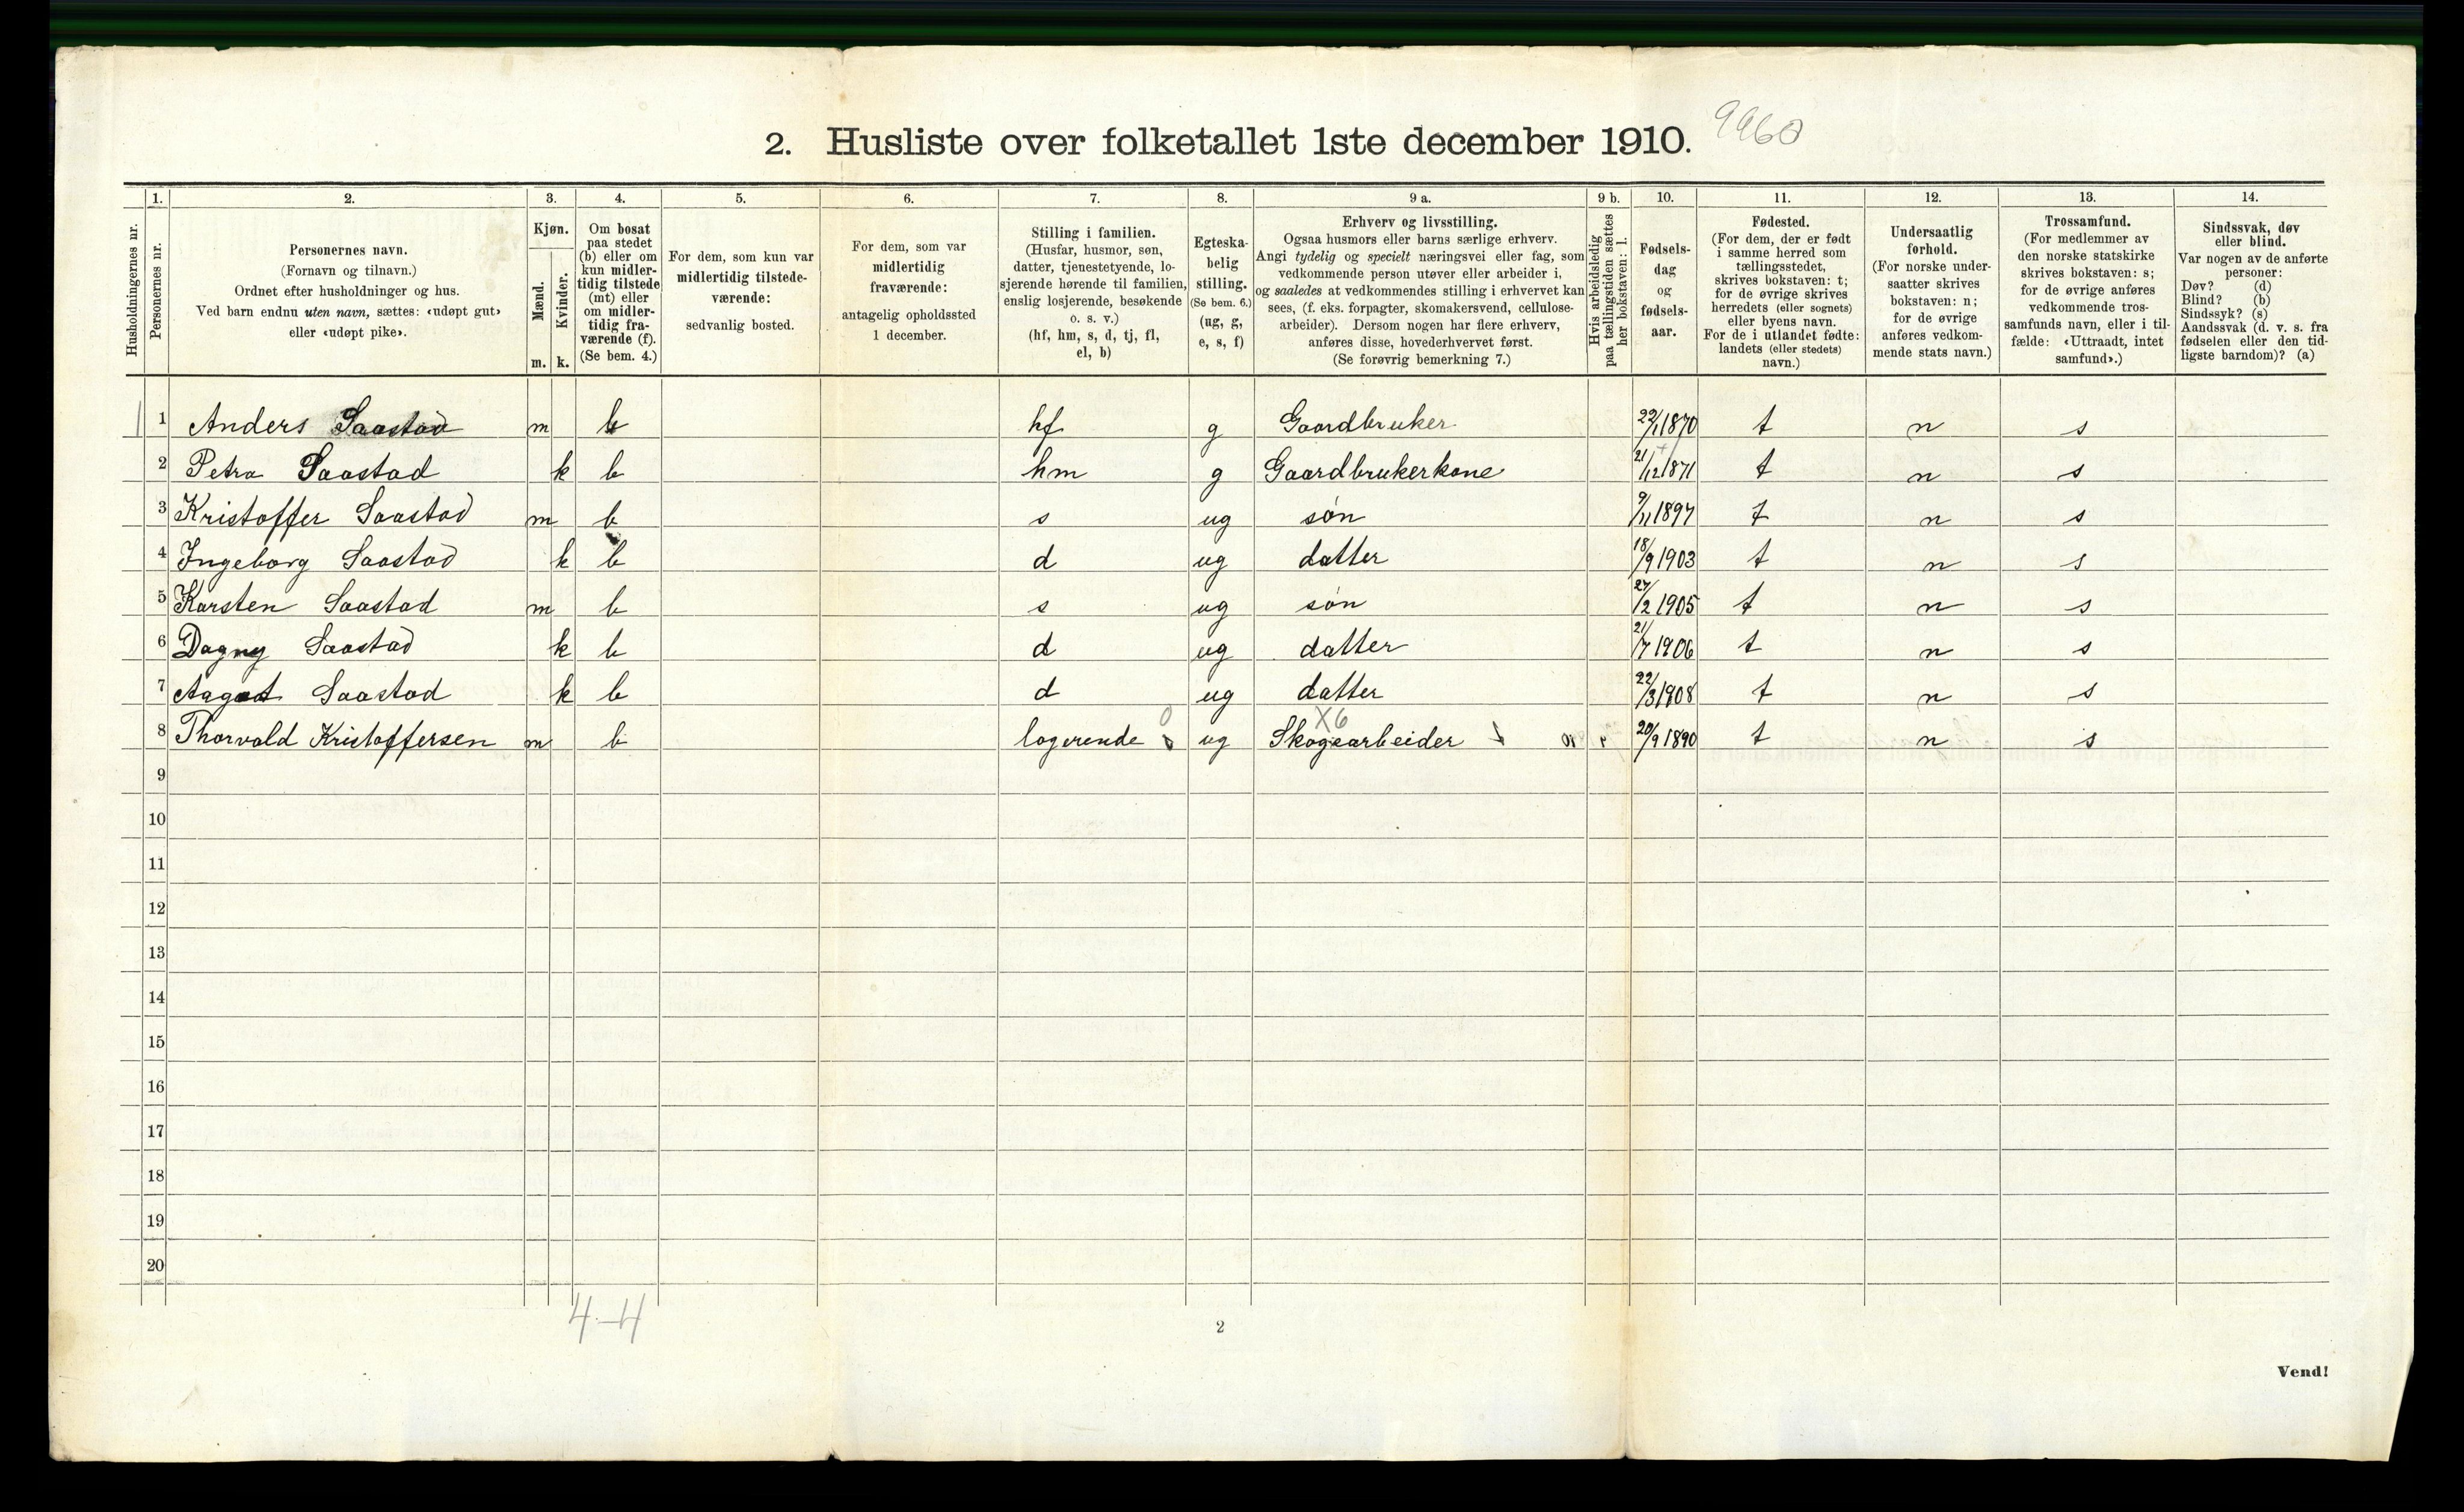 2. Husliste over folketallet 1ste december 1910. 9960
Husholdningernes nr.
1. Personernes nr.
2. Personernes navn.
(Fornavn og tilnavn.)
Ordnet efter husholdninger og hus.
Ved barn endnu uten navn, sættes: «udøpt gut»
eller «udøpt pike».
3. Kjøn.
Mænd. m.
Kvinder. k.
4. Om bosat
paa stedet
(b) eller om
kun midler-
tidig tilstede
(mt) eller
om midler-
tidig fra-
værende (f).
(Se bem. 4.)
5. For dem, som kun var
midlertidig tilstede-
værende:
sedvanlig bosted.
6. For dem, som var
midlertidig
fraværende:
antagelig opholdssted
1 december.
7. Stilling i familien.
(Husfar, husmor, søn,
datter, tjenestetyende, lo-
sjerende hørende til familien,
enslig losjerende, besøkende
o. s. v.)
(hf, hm, s, d, tj, fl,
el, b)
8. Egteska-
belig
stilling.
(Se bem. 6.)
(ug, g,
e, s, f)
9 a. Erhverv og livsstilling.
Ogsaa husmors eller barns særlige erhverv.
Angi tydelig og specielt næringsvei eller fag, som
vedkommende person utøver eller arbeider i,
og saaledes at vedkommendes stilling i erhvervet kan
sees, (f. eks. forpagter, skomakersvend, cellulose-
arbeider). Dersom nogen har flere erhverv,
anføres disse, hovederhvervet først.
(Se forøvrig bemerkning 7.)
9 b. Hvis arbeidsledig
paa tællingstiden sættes
her bokstaven: l.
10. Fødsels-
dag
og
fødsels-
aar.
11. Fødested.
(For dem, der er født
i samme herred som
tællingsstedet,
skrives bokstaven: t;
for de øvrige skrives
herredets (eller sognets)
eller byens navn.
For de i utlandet fødte:
landets (eller stedets)
navn.)
12. Undersaatlig
forhold.
(For norske under-
saatter skrives
bokstaven: n;
for de øvrige
anføres vedkom-
mende stats navn.)
13. Trossamfund.
(For medlemmer av
den norske statskirke
skrives bokstaven: s;
for de øvrige anføres
vedkommende tros-
samfunds navn, eller i til-
fælde: «Uttraadt, intet
samfund».)
14. Sindssvak, døv
eller blind.
Var nogen av de anførte
personer:
Døv? (d)
Blind? (b)
Sindssyk? (s)
Aandssvak (d. v. s. fra
fødselen eller den tid-
ligste barndom)? (a)
1 1 Anders Saastad m b hf g Gaardbruker 22/1 1870 t n s
2 Petra Saastad k b hm g Gaardbrukerkone 21/12 1871 t n s
3 Kristoffer Saastad m b s ug søn 9/11 1897 t n s
4 Ingeborg Saastad k b d ug datter 18/9 1903 t n s
5 Karsten Saastad m b s ug søn 27/2 1905 t n s
6 Dagny Saastad k b d ug datter 21/7 1906 t n s
7 Aagot Saastad k b d ug datter 22/3 1908 t n s
0 X6
8 Thorvald Kristoffersen m b logerende ug Skogsarbeider 20/9 1890 t n s
9
10
11
12
13
14
15
16
17
18
19
20
4-4
2
Vend!